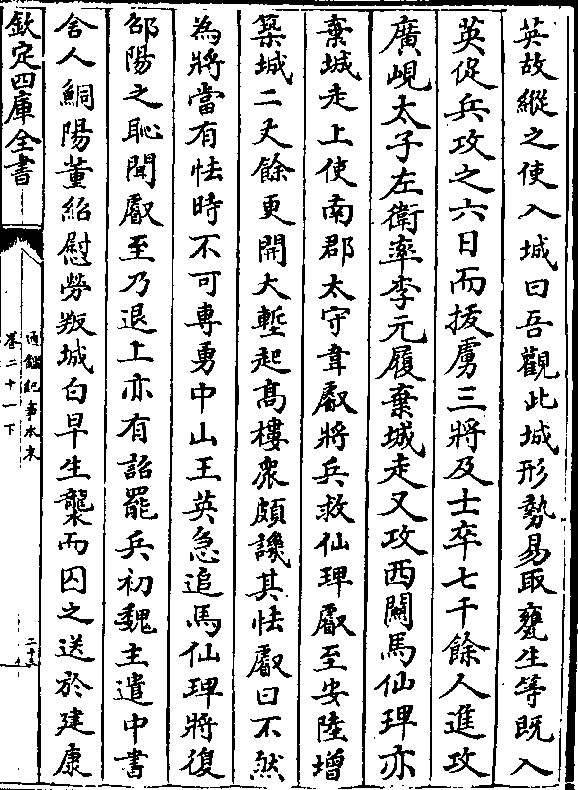 英故縱之使入城曰吾觀此城形勢易取甕生等既入
英促兵攻之六日而拔虜三將及士卒七千餘人進攻
廣峴太子左衛率李元履棄城走又攻西關馬仙琕亦
棄城走上使南郡太守韋叡將兵救仙琕叡至安陸增
築城二丈餘更開大塹起髙樓衆頗譏其怯叡曰不然
為將當有怯時不可專勇中山王英急追馬仙琕將復
邵陽之恥聞叡至乃退上亦有詔罷兵初魏主遣中書
舍人鮦陽董紹慰勞叛城白早生襲而囚之送於建康
欽定四庫全書
通鑑紀事本末
卷二十一下
二十五